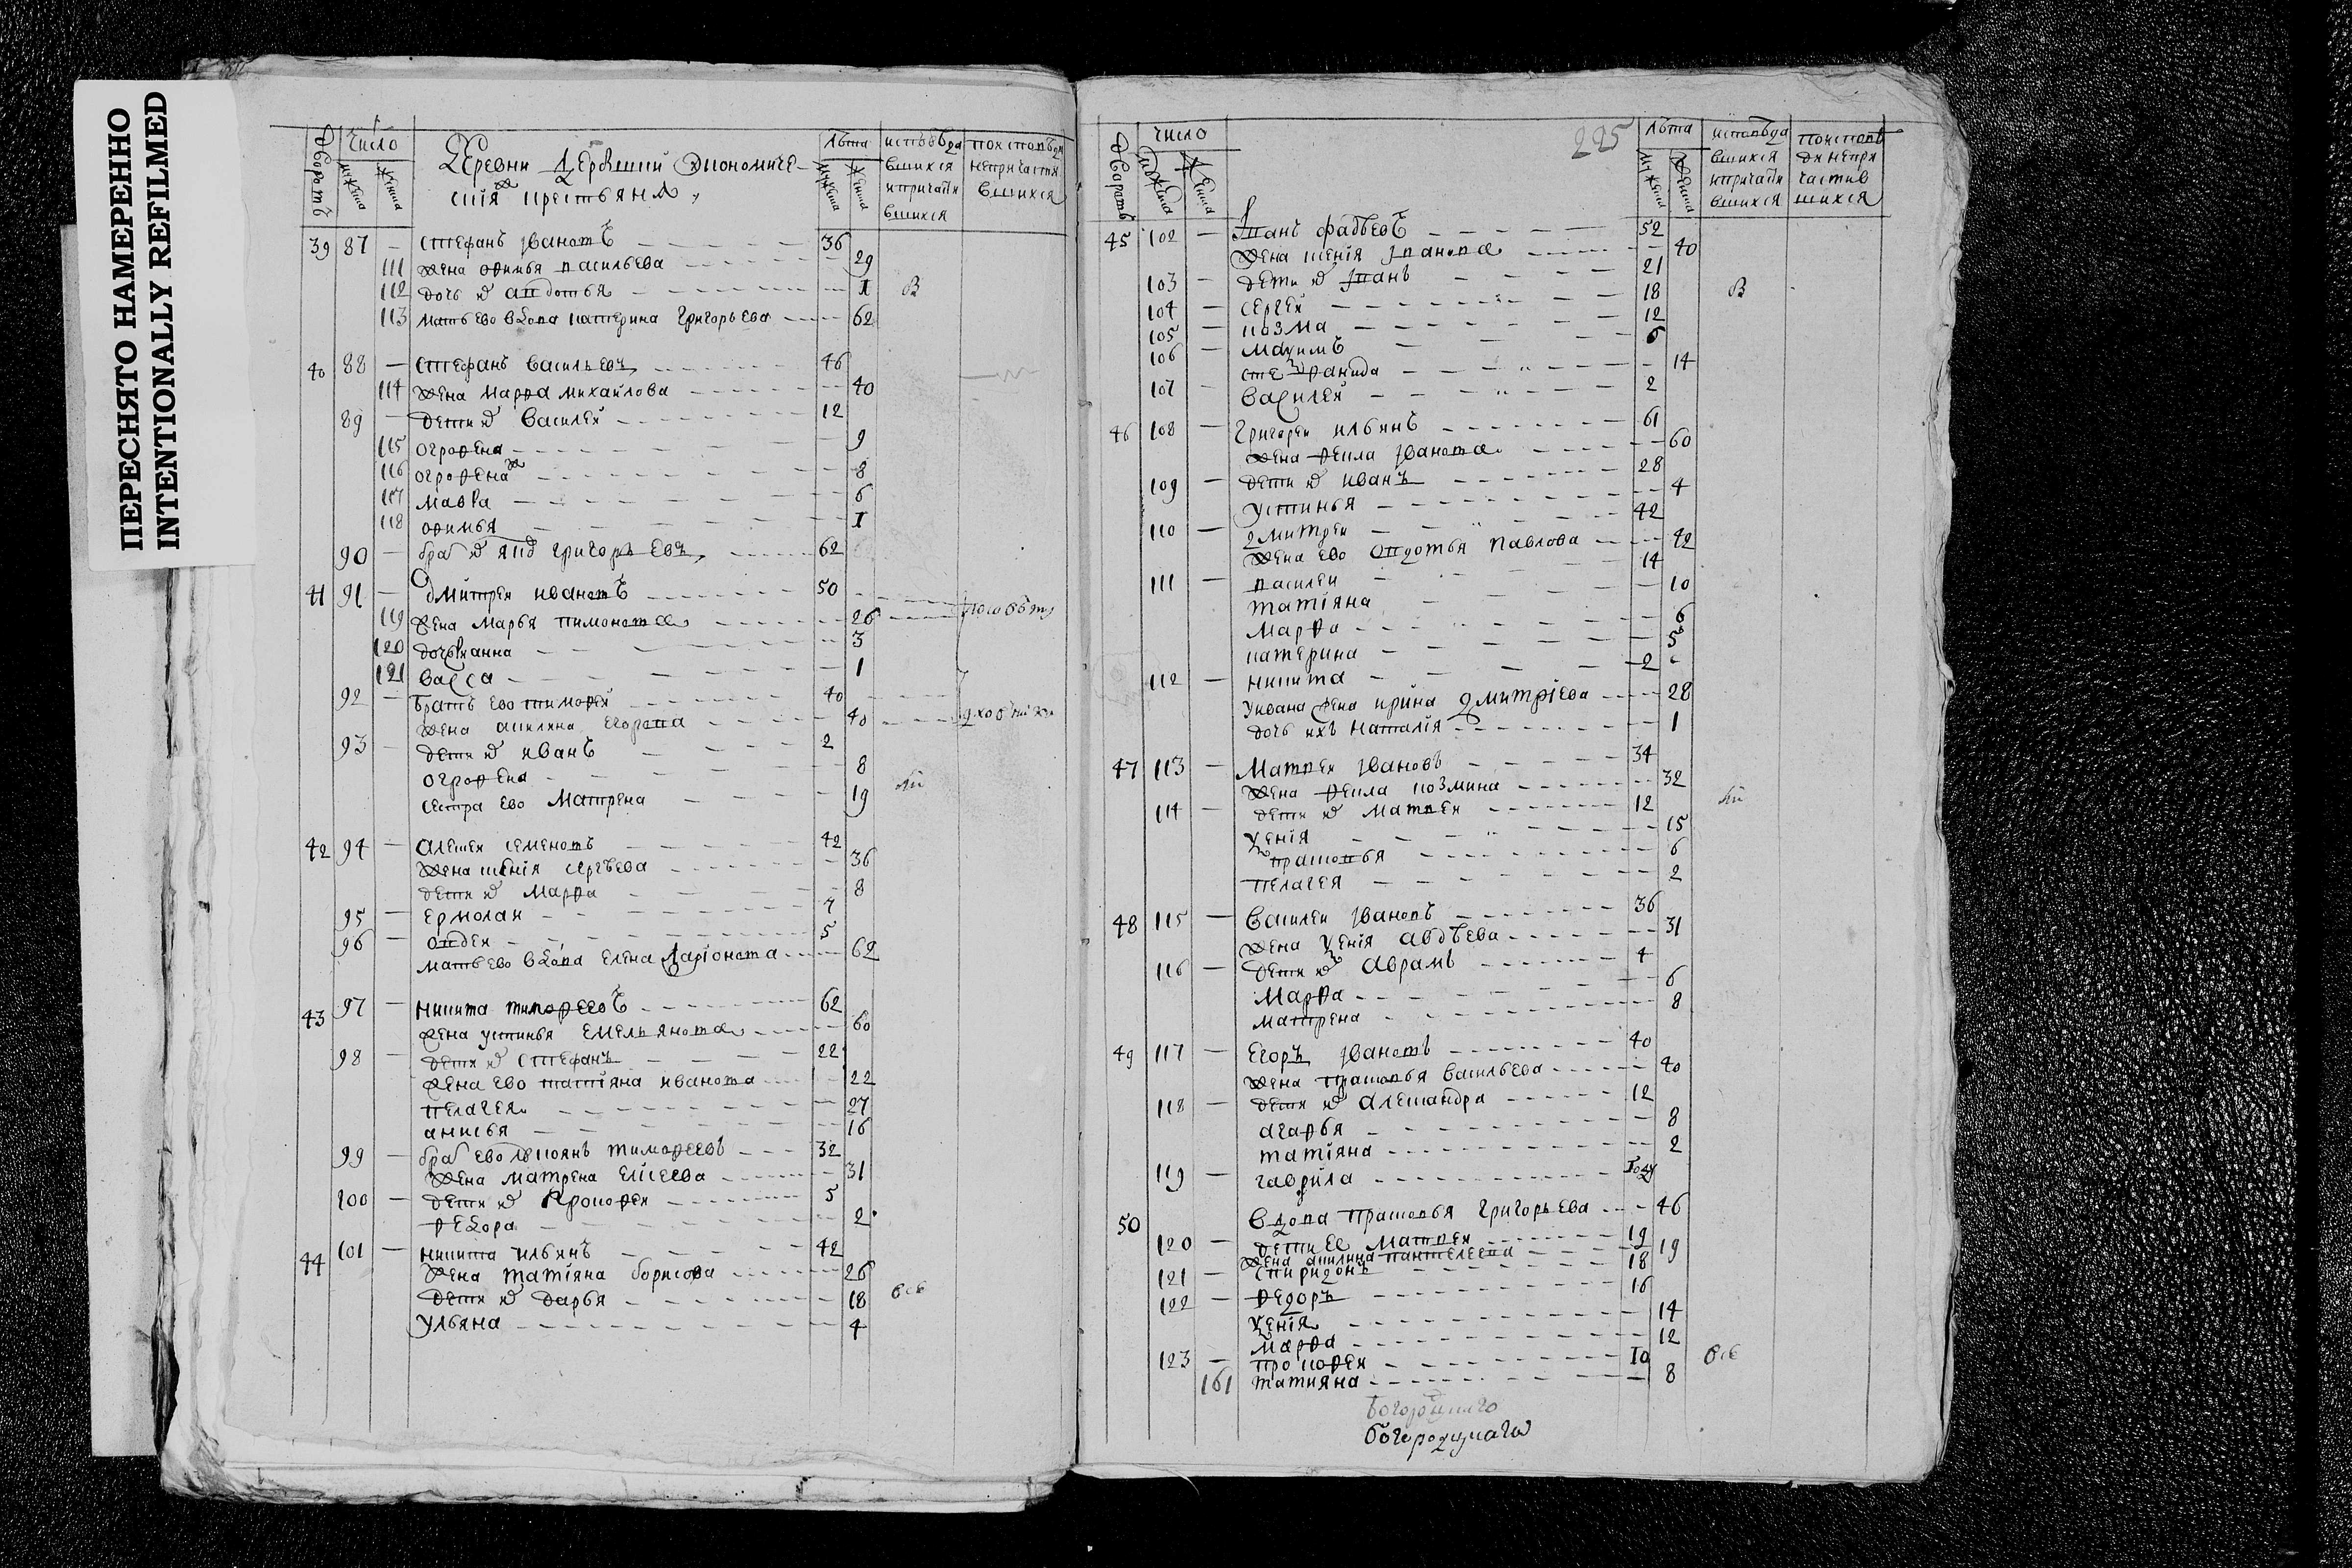 ПЕРЕСНЯТО НАМЕРЕННО
INTENTIONALLY REFILMED
число
лѣта
Деревни экономиче-
скія крестьяня
39 87 — Стефанъ Ивановъ 36
111 жена офимья васильева 29
112 дочь авдотья 1 В
113 мать ево вдова катерина Григорьева 62
40 88 — Стефанъ Васильевъ 46
114 жена Марфа михайлова 40
89 — дети Василей 12
115 огрофена 9
116 огрофена ж 8
117 мавра 6
118 офимья 1
90 — Григорьевъ 62
41 91 — Дмитрей ивановъ 50
119 жена Марья 26
120 дочь анна 3
121 Васса 1
92 — братъ ево тимофей 40
жена акилина Егорова 40
93 — дети иванъ 2
огрофена 8
сестра ево Матрена 19
42 94 — Алексей семеновъ 42
жена сергѣева 36
дети Марфа 8
95 — Ермолай 7
96 — овдей 5
мать ево вдова Елена Ларіонова 62
43 97 — никита тимофеевъ 62
жена устинья Емельянова 60
98 — дети Стефанъ 22
жена ево татіяна иванова 22
пелагея 27
анисья 16
99 — брат ево тимофеевъ 32
жена матрена Елисеева 31
100 — дети Прокофей 5
федора 2
44 101 — никита ильинъ 42
жена татіяна борисова 26
дети дарья 18 всѣ
Ульяна 4
225
число
лѣта
45 102 — Иванъ фадѣевъ 52
жена Иванова 40
103 — дети Иванъ 21 В
104 — Сергей 18
105 — козма 12
106 — Максимъ 6
стефанида 14
107 — Василей 2
46 108 — Григорей ильинъ 61
жена фекла Иванова 60
109 — дети иванъ 28
устинья 4
110 — дмитрей 42
жена ево овдотья павлова 42
111 — василей 14
татіяна 10
марфа 6
катерина 5
112 — никита 2
Уивана жена ирина дмитріева 28
дочь ихъ наталія 1
47 113 — Матвей Ивановъ 34
жена фекла козмина 32
114 — дети матвей 12
ксенія 15
прасковья 6
пелагея 2
48 115 — Василей Ивановъ 36
жена ксенія авдѣева 31
116 — дети аврамъ 4
Марфа 6
матрена 8
49 117 — Егоръ Ивановъ 40
жена прасковья васильева 40
118 — дети Александра 12
агафья 8
татіяна 2
119 — гаврила году
50 Вдова прасковья Григорьева 46
120 — дети Ее Матвей 19
жена акилина пантелеева 19
121 — Спиридонъ 18
122 — федоръ 16
ксенія 14
марфа 12
123 — прокофей 10 всѣ
161 татияна 8
богородицкаго